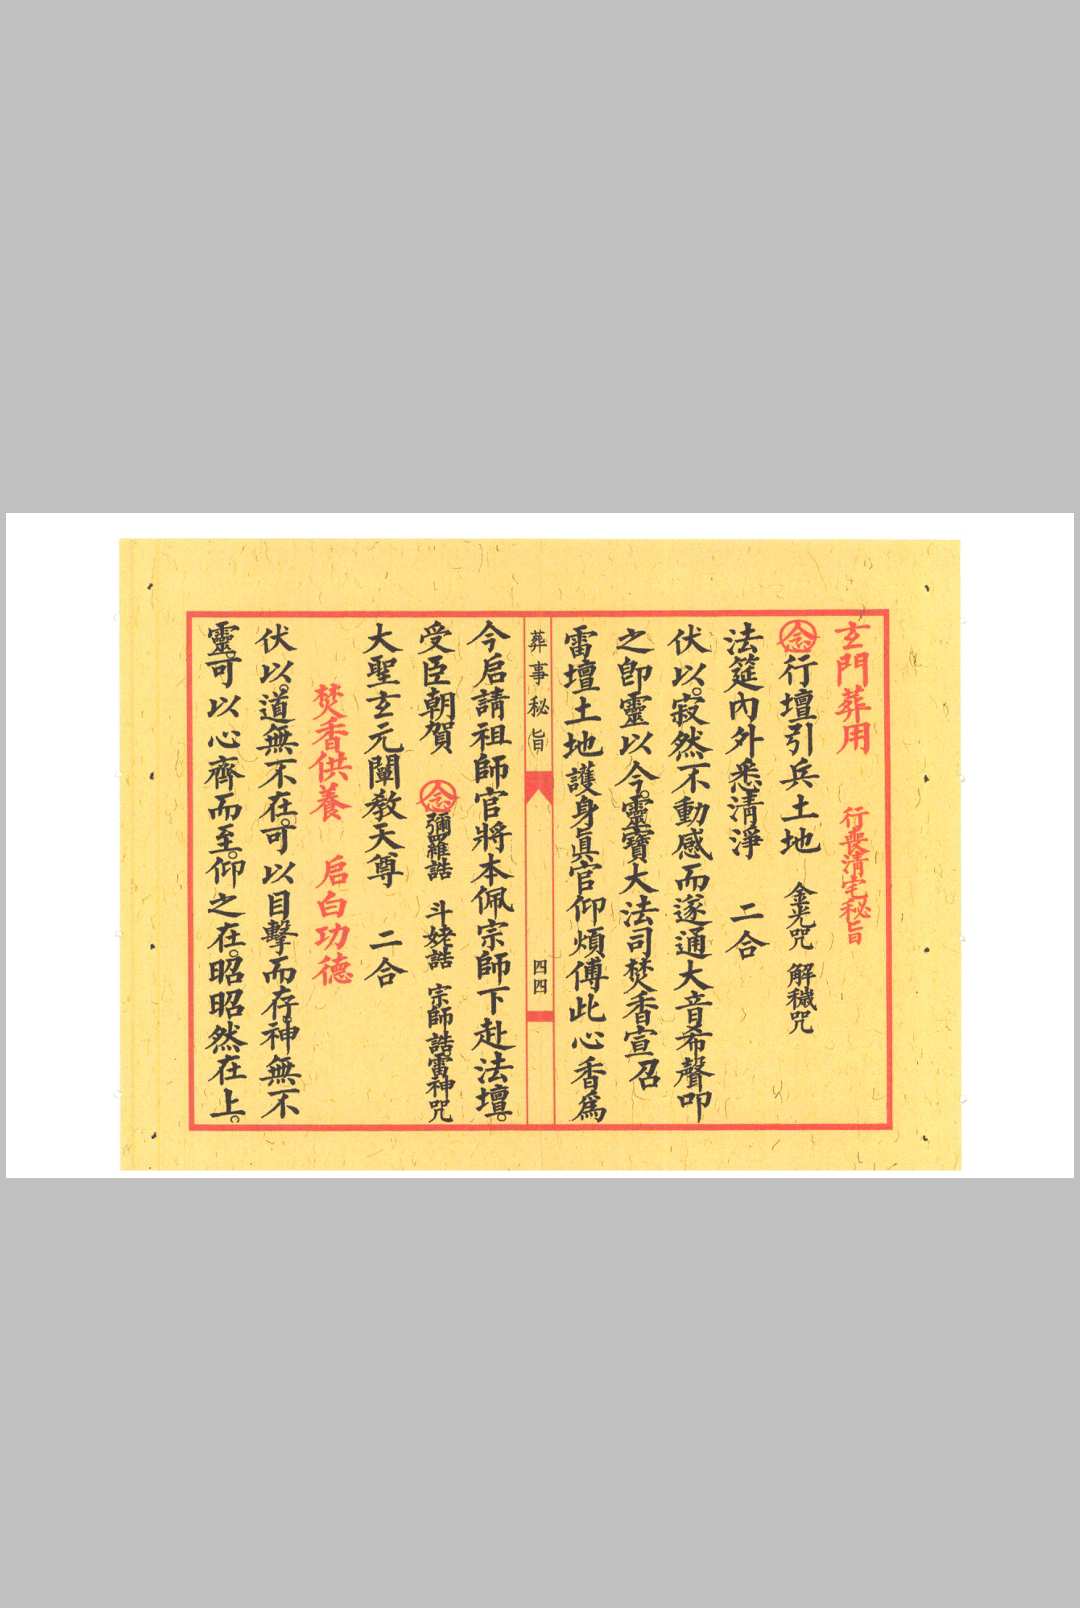 玄門葬用 行喪清宅秘旨
念行壇引兵土地 金光咒 解穢咒
法筵內外悉清淨 二合
伏以。寂然不動感而遂通大音希聲叩
之卽靈以今。靈寶大法司焚香宣召
雷壇土地護身眞官仰煩傅此心香爲
葬事秘旨 四四
今启請祖師官將本佩宗師下赴法壇。
受臣朝賀 念彌羅誥 斗姥誥 宗師誥雷神咒
大聖玄元闡教天尊 二合
焚香供養 启白功德
伏以。道無不在。可以目擊而存。神無不
靈。可以心齋而至。仰之在。昭昭然在上。